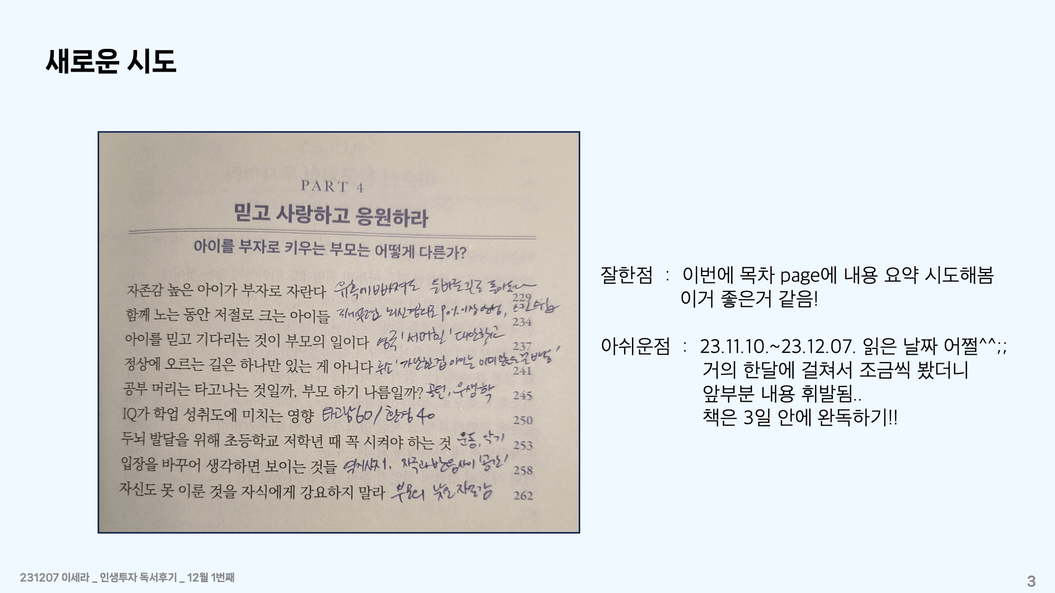 새로운 시도
PART 4
믿고 사랑하고 응원하라
아이를 부자로 키우는 부모는 어떻게 다른가?
자존감 높은 아이가 부자로 자란다 229
함께 노는 동안 저절로 크는 아이들 234
아이를 믿고 기다리는 것이 부모의 일이다 영국 '서머힐' 대안학교 237
정상에 오르는 길은 하나만 있는 게 아니다 241
공부 머리는 타고나는 것일까, 부모 하기 나름일까? 우생학 245
IQ가 학업 성취도에 미치는 영향 타고남 60 / 환경 40 250
두뇌 발달을 위해 초등학교 저학년 때 꼭 시켜야 하는 것 운동, 악기 253
입장을 바꾸어 생각하면 보이는 것들 역지사지. 자극과 반응사이 '공간' 258
자신도 못 이룬 것을 자식에게 강요하지 말라 부모의 낮은 자존감 262
잘한점 : 이번에 목차 page에 내용 요약 시도해봄
이거 좋은거 같음!
아쉬운점 : 23.11.10.~23.12.07. 읽은 날짜 어쩔^^;;
거의 한달에 걸쳐서 조금씩 봤더니
앞부분 내용 휘발됨..
책은 3일 안에 완독하기!!
231207 이세라 _ 인생투자 독서후기 _ 12월 1번째
3